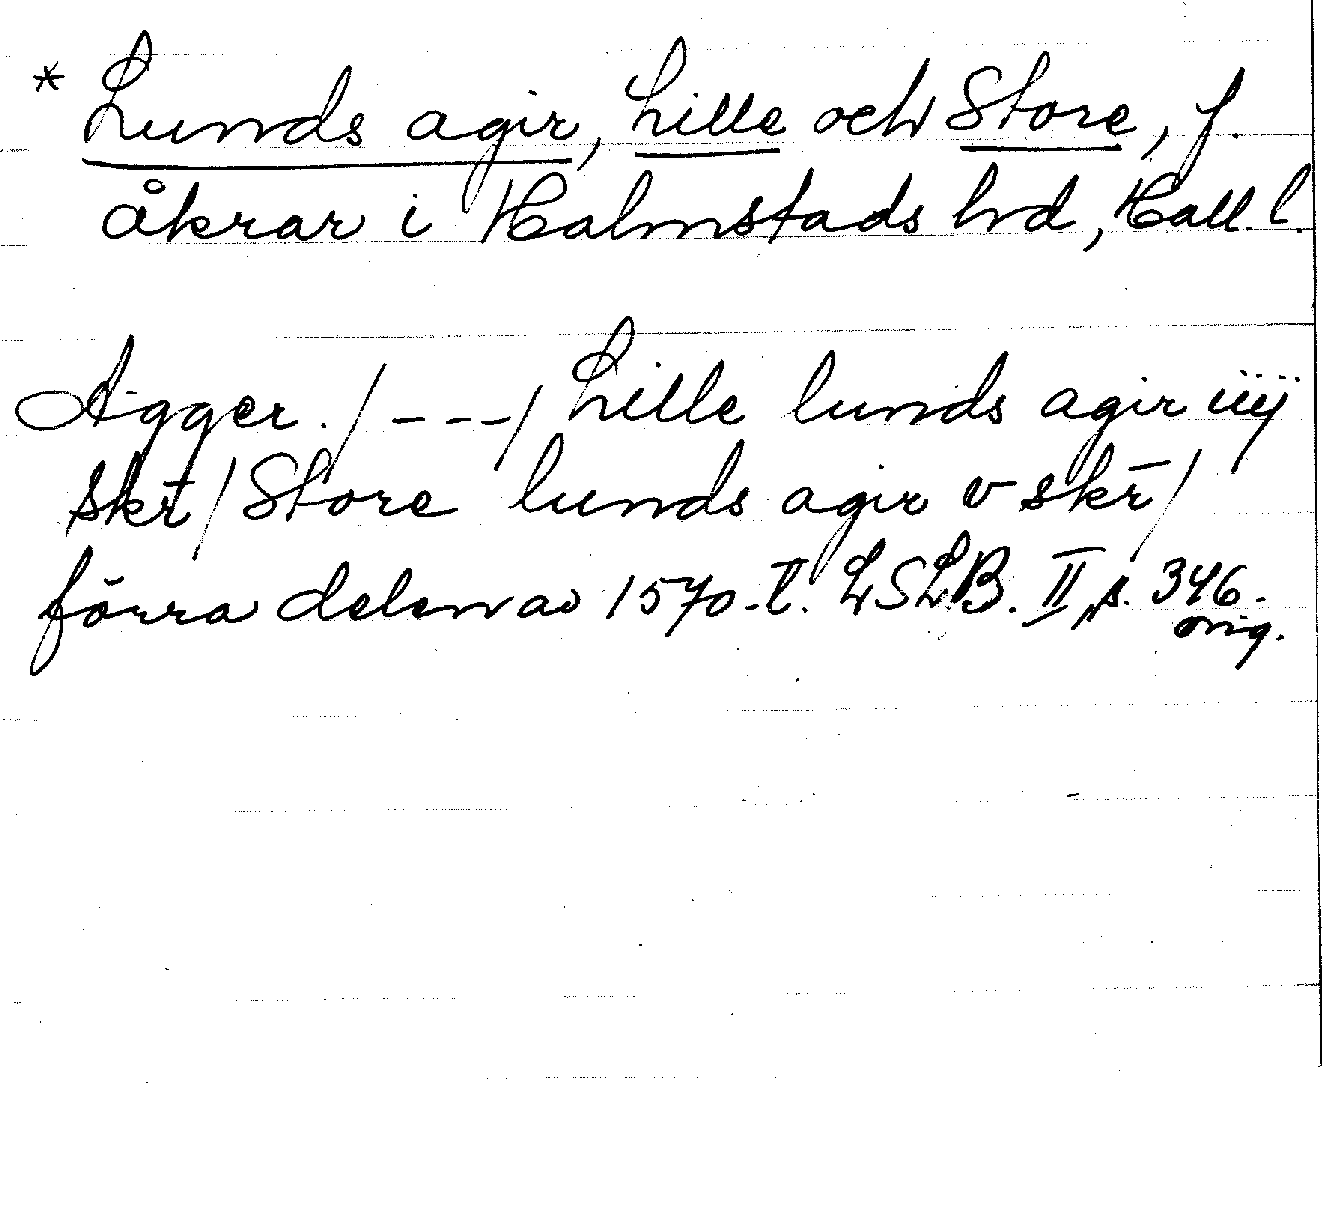 * Lunds agir, Lille och Store, f.
åkrar i Halmstads hd, Hall. l.
Agger. / - - - / Lille lunds agir iiij
skr̄ / Store lunds agir v skr̄ /
förra delen av 1570-t. LSLB. II, s. 346.
orig.